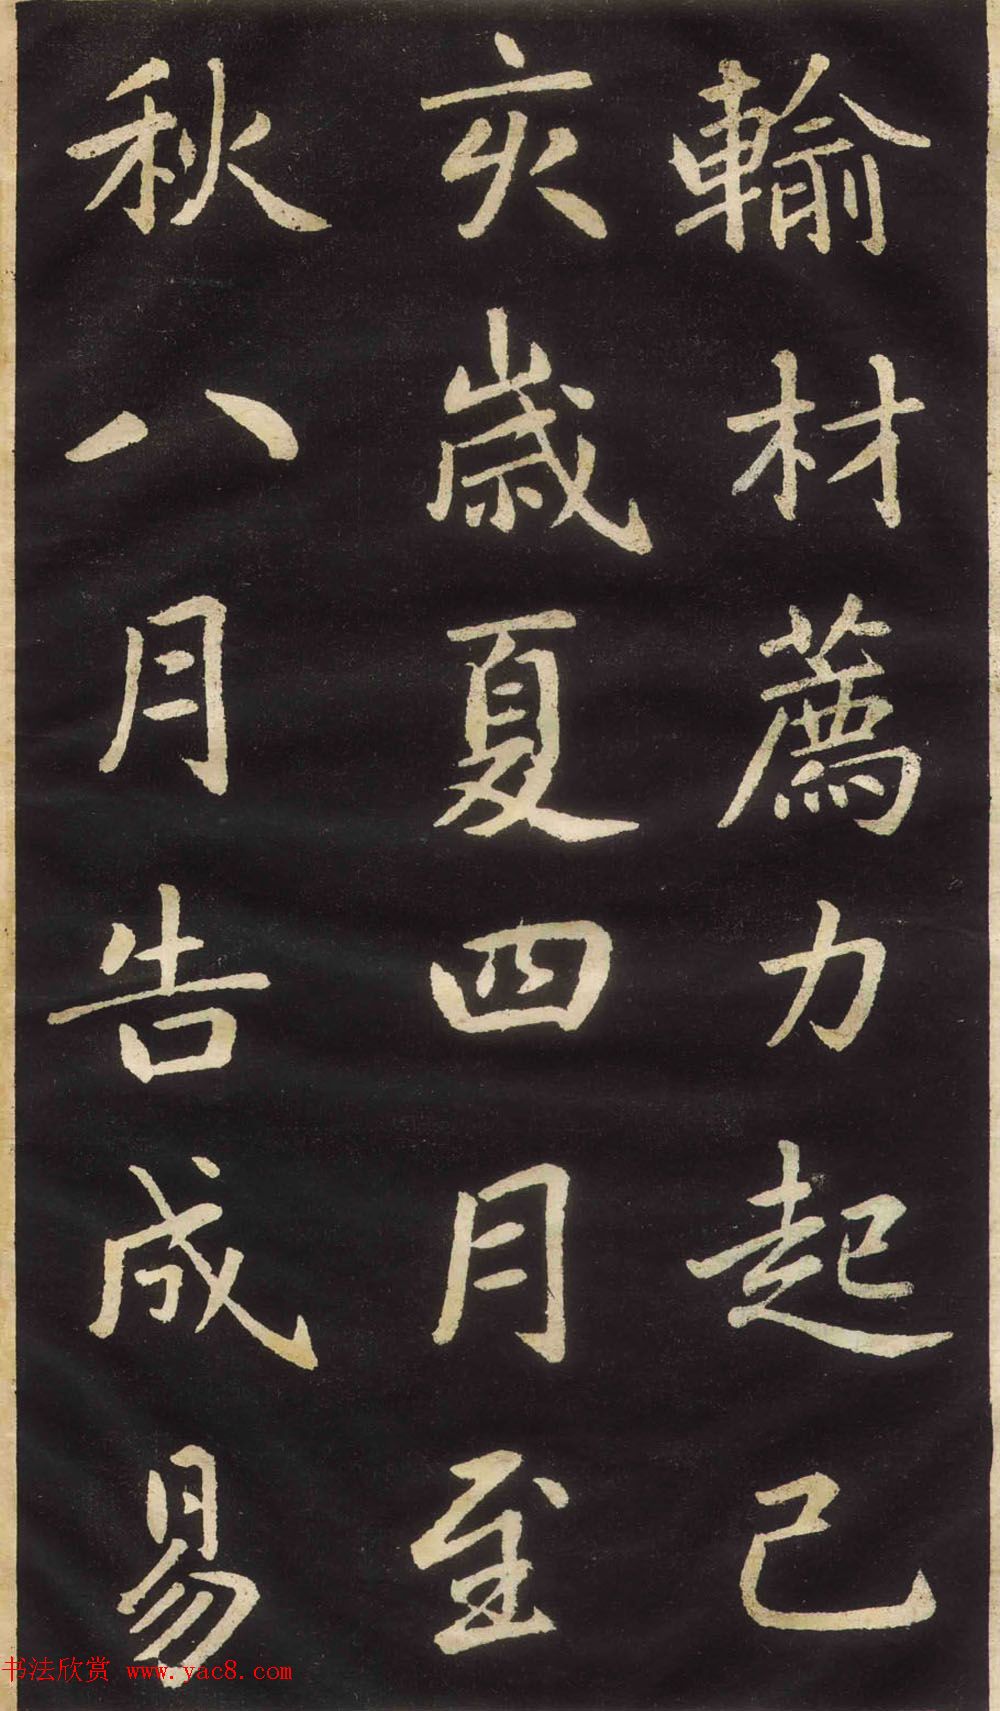 輸材薦力起己
亥歲夏四月至
秋八月告成易
书法欣赏 www.yac8.com